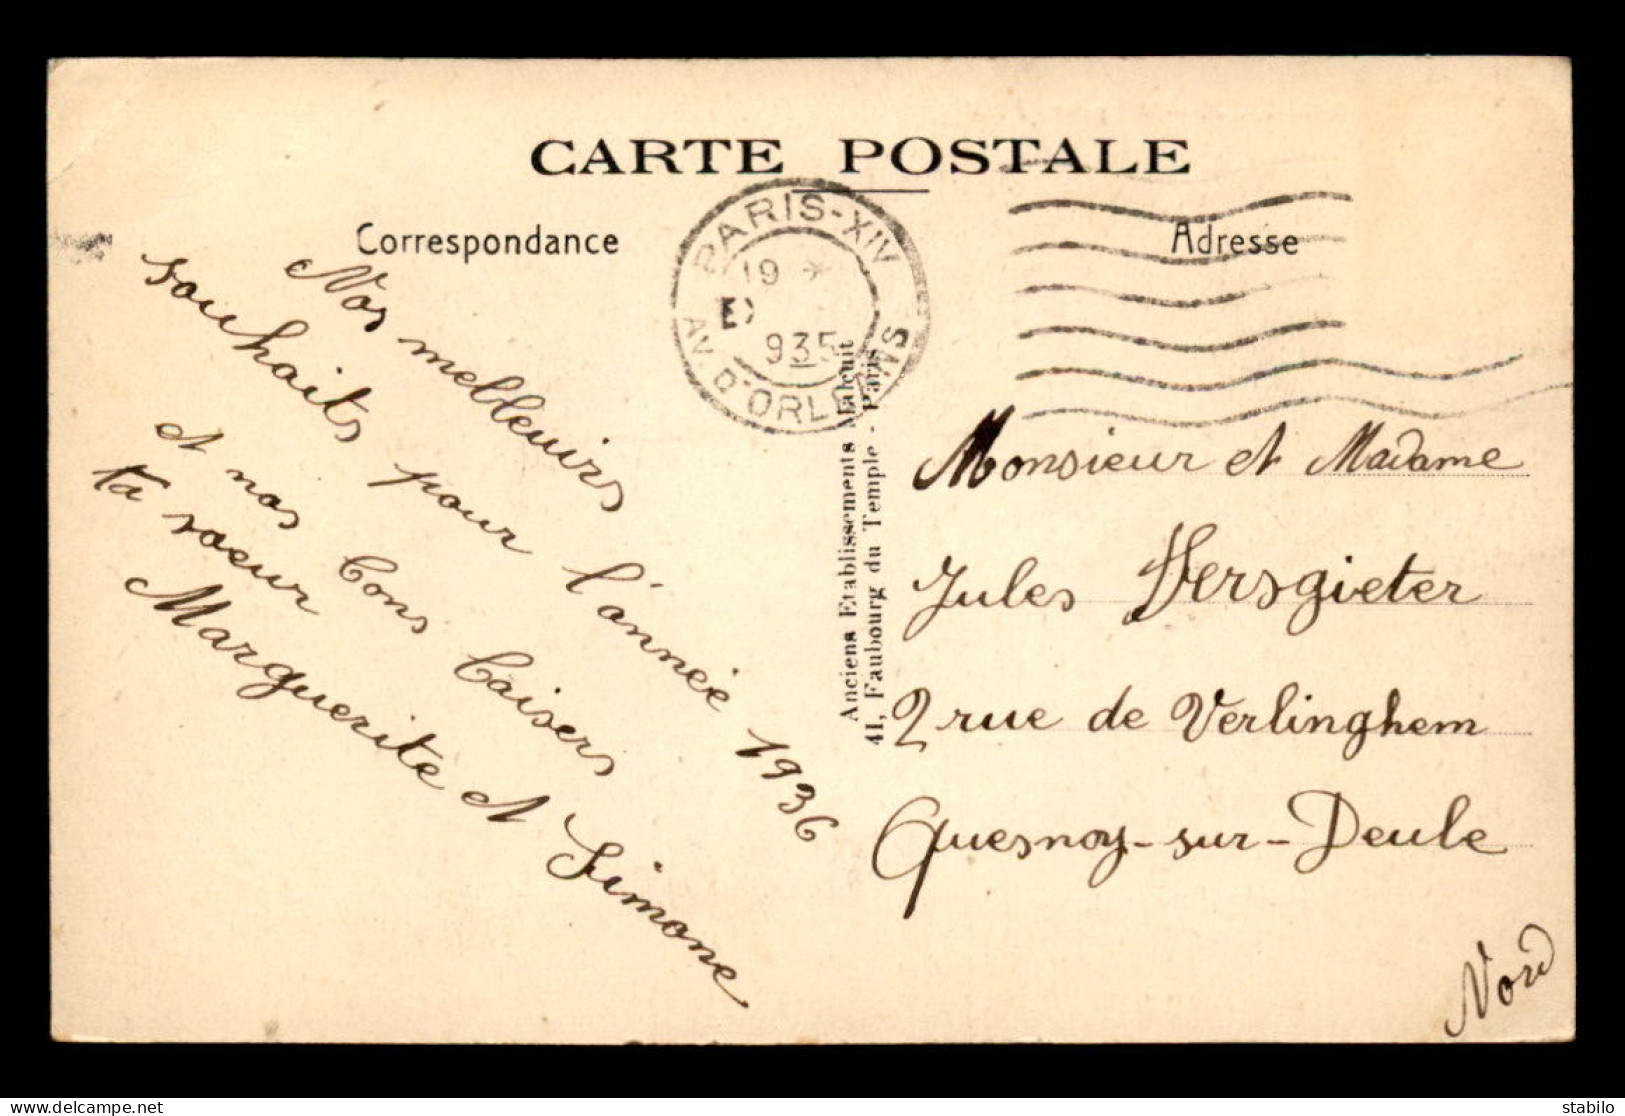 CARTE POSTALE
Correspondance
Adresse
PARIS-XIV
19 *
935
AV. D'ORLEANS
Nos meilleuirs
souhaits pour l'année 1936
et nos bons baisers
ta soeur
Marguerite et Simone
Anciens Etablissements Malcuit
41, Faubourg du Temple - Paris
Monsieur et Madame
Jules Versgieter
2 rue de Verlinghem
Quesnoy-sur-Deule
Nord
delcampe.net
stabilo